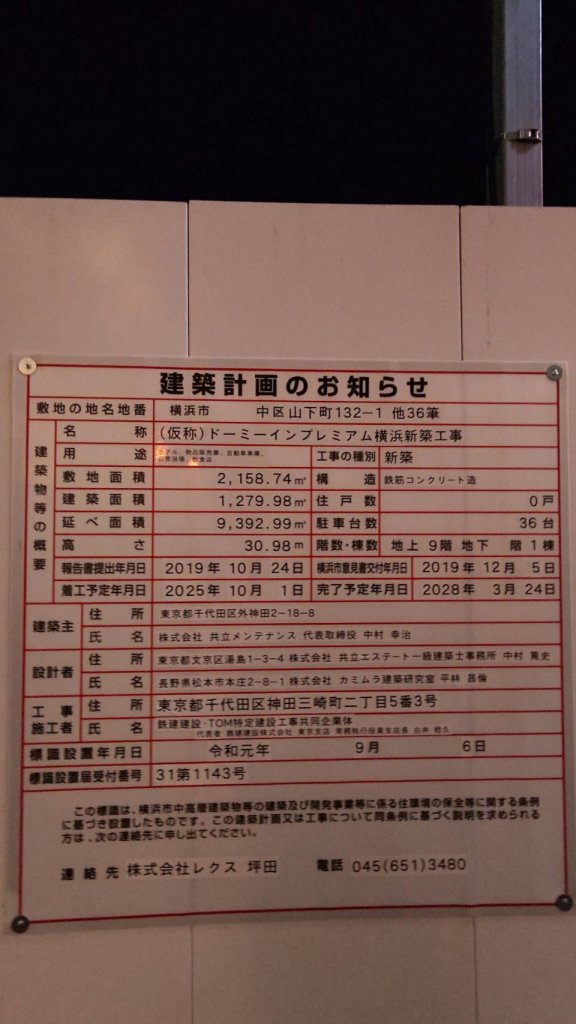 建築計画のお知らせ
敷地の地名地番 横浜市 中区山下町132-1 他36筆
建築物等の概要
名称 (仮称)ドーミーインプレミアム横浜新築工事
用途 ホテル、物品販売業、自動車車庫、公衆浴場、飲食店 工事の種別 新築
敷地面積 2,158.74㎡ 構造 鉄筋コンクリート造
建築面積 1,279.98㎡ 住戸数 0戸
延べ面積 9,392.99㎡ 駐車台数 36台
高さ 30.98m 階数・棟数 地上 9階 地下 階 1棟
報告書提出年月日 2019年 10月 24日 横浜市意見書交付年月日 2019年 12月 5日
着工予定年月日 2025年 10月 1日 完了予定年月日 2028年 3月 24日
建築主 住所 東京都千代田区外神田2-18-8
氏名 株式会社 共立メンテナンス 代表取締役 中村 幸治
設計者 住所 東京都文京区湯島1-3-4 株式会社 共立エステート一級建築士事務所 中村 篤史
氏名 長野県松本市本庄2-8-1 株式会社 カミムラ建築研究室 平林 昌倫
工事施工者 住所 東京都千代田区神田三崎町二丁目5番3号
氏名 鉄建建設・TOM特定建設工事共同企業体
代表者 鉄建建設株式会社 東京支店 常務執行役員支店長 白井 稔久
標識設置年月日 令和元年 9月 6日
標識設置届受付番号 31第1143号
この標識は、横浜市中高層建築物等の建築及び開発事業等に係る住環境の保全等に関する条例
に基づき設置したものです。この建築計画又は工事について同条例に基づく説明を求められる
方は、次の連絡先に申し出てください。
連絡先 株式会社レクス 坪田 電話 045(651)3480